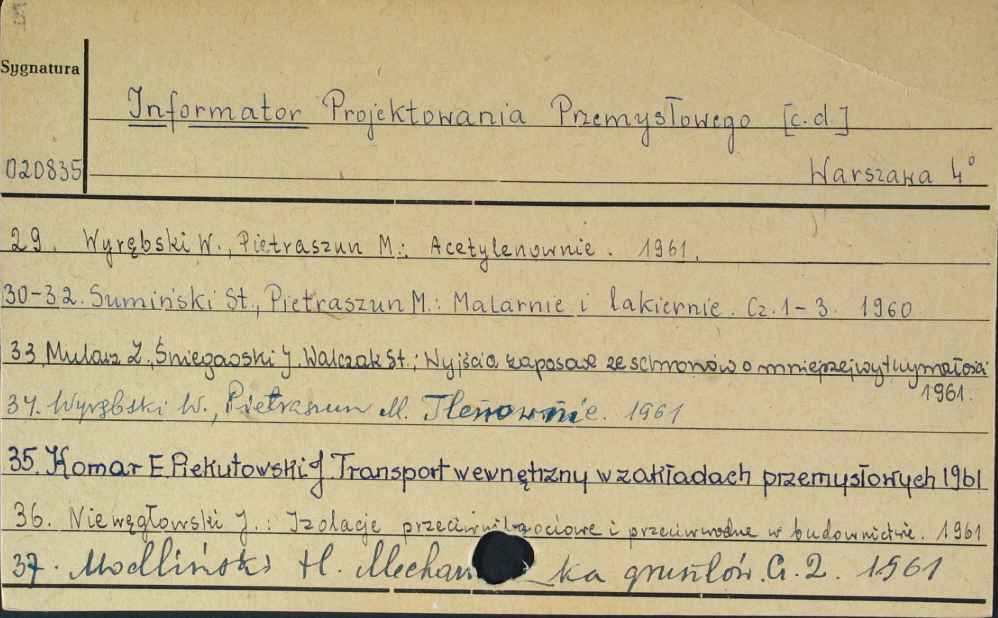 Sygnatura
Informator Projektowania Przemysłowego [c.d]
020835 Warszawa 4°
29. Wyrębski W., Pietraszun M.: Acetylenownie. 1961.
30-32. Sumiński St., Pietraszun M.: Malarnie i lakiernie. Cz. 1-3. 1960
33. Mularz Z., J. Walczak St.: Wyjścia zapasowe ze schronów o mniejszej wytrzymałości
1961.
34. Wyrębski W., Pietraszun M. Tlenownie. 1961
35. Komar E. Piekutowski J. Transport wewnętrzny w zakładach przemysłowych 1961
36. Niewęgłowski J.: Izolacje przeciwwilgociowe i przeciwwodne w budownictwie. 1961
37. Modliński H. Mechanika gruntów. 2. 1961